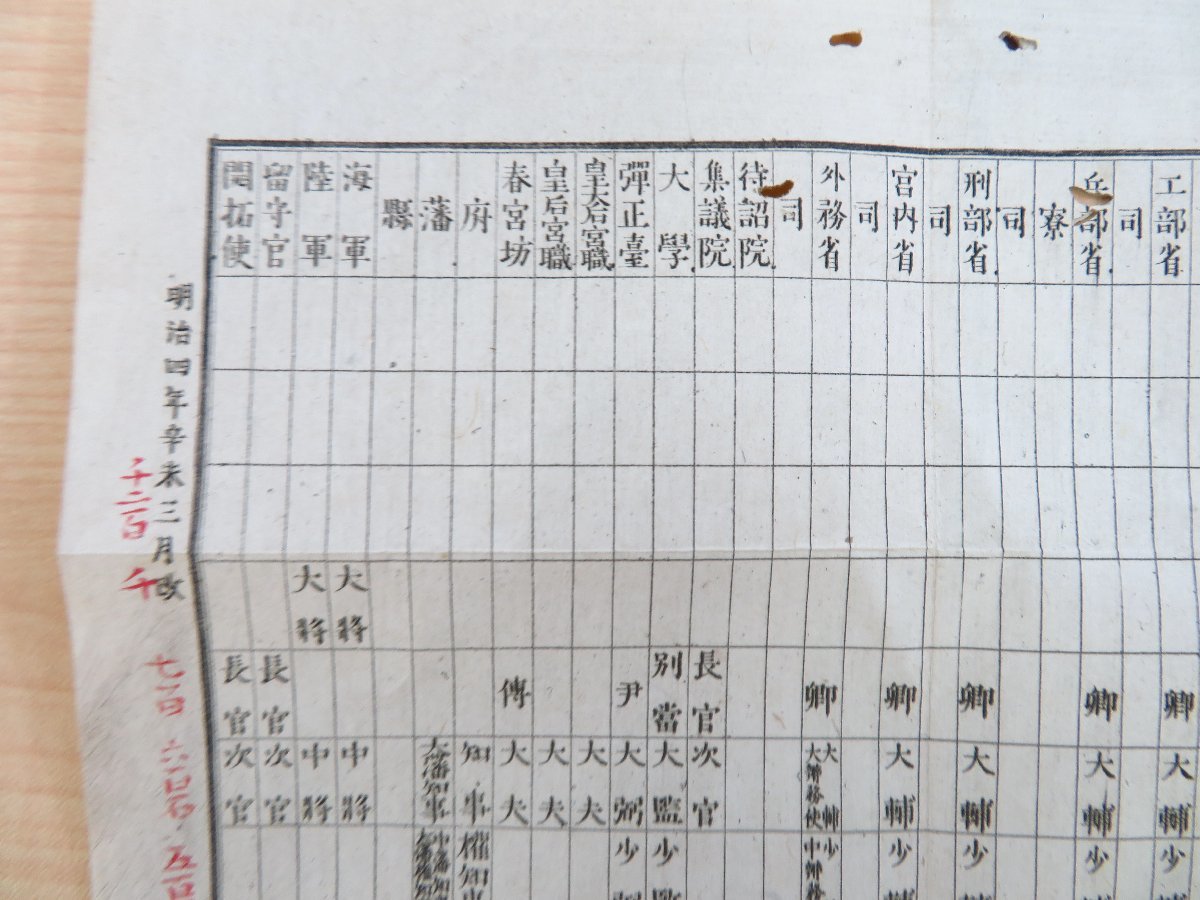 工部省 卿 大輔 少
司
兵部省 卿 大輔 少
寮
司
刑部省 卿 大輔 少輔
司
宮内省 卿 大輔 少輔
司
外務省 卿 大輔 少
大辨務使 中辨務
司
待詔院
集議院 長官 次官
大學 別當 大監 少監
彈正臺 尹 大弼 少弼
皇太后宮職 大夫
皇后宮職 大夫
春宮坊 傳 大夫
府 知事 權知事
藩 大藩知事 中藩知
縣
海軍 大將 中將
陸軍 大將 中將
留守官 長官 次官
開拓使 長官 次官
明治四年辛未三月改
千二百 千 七百 六百 五百